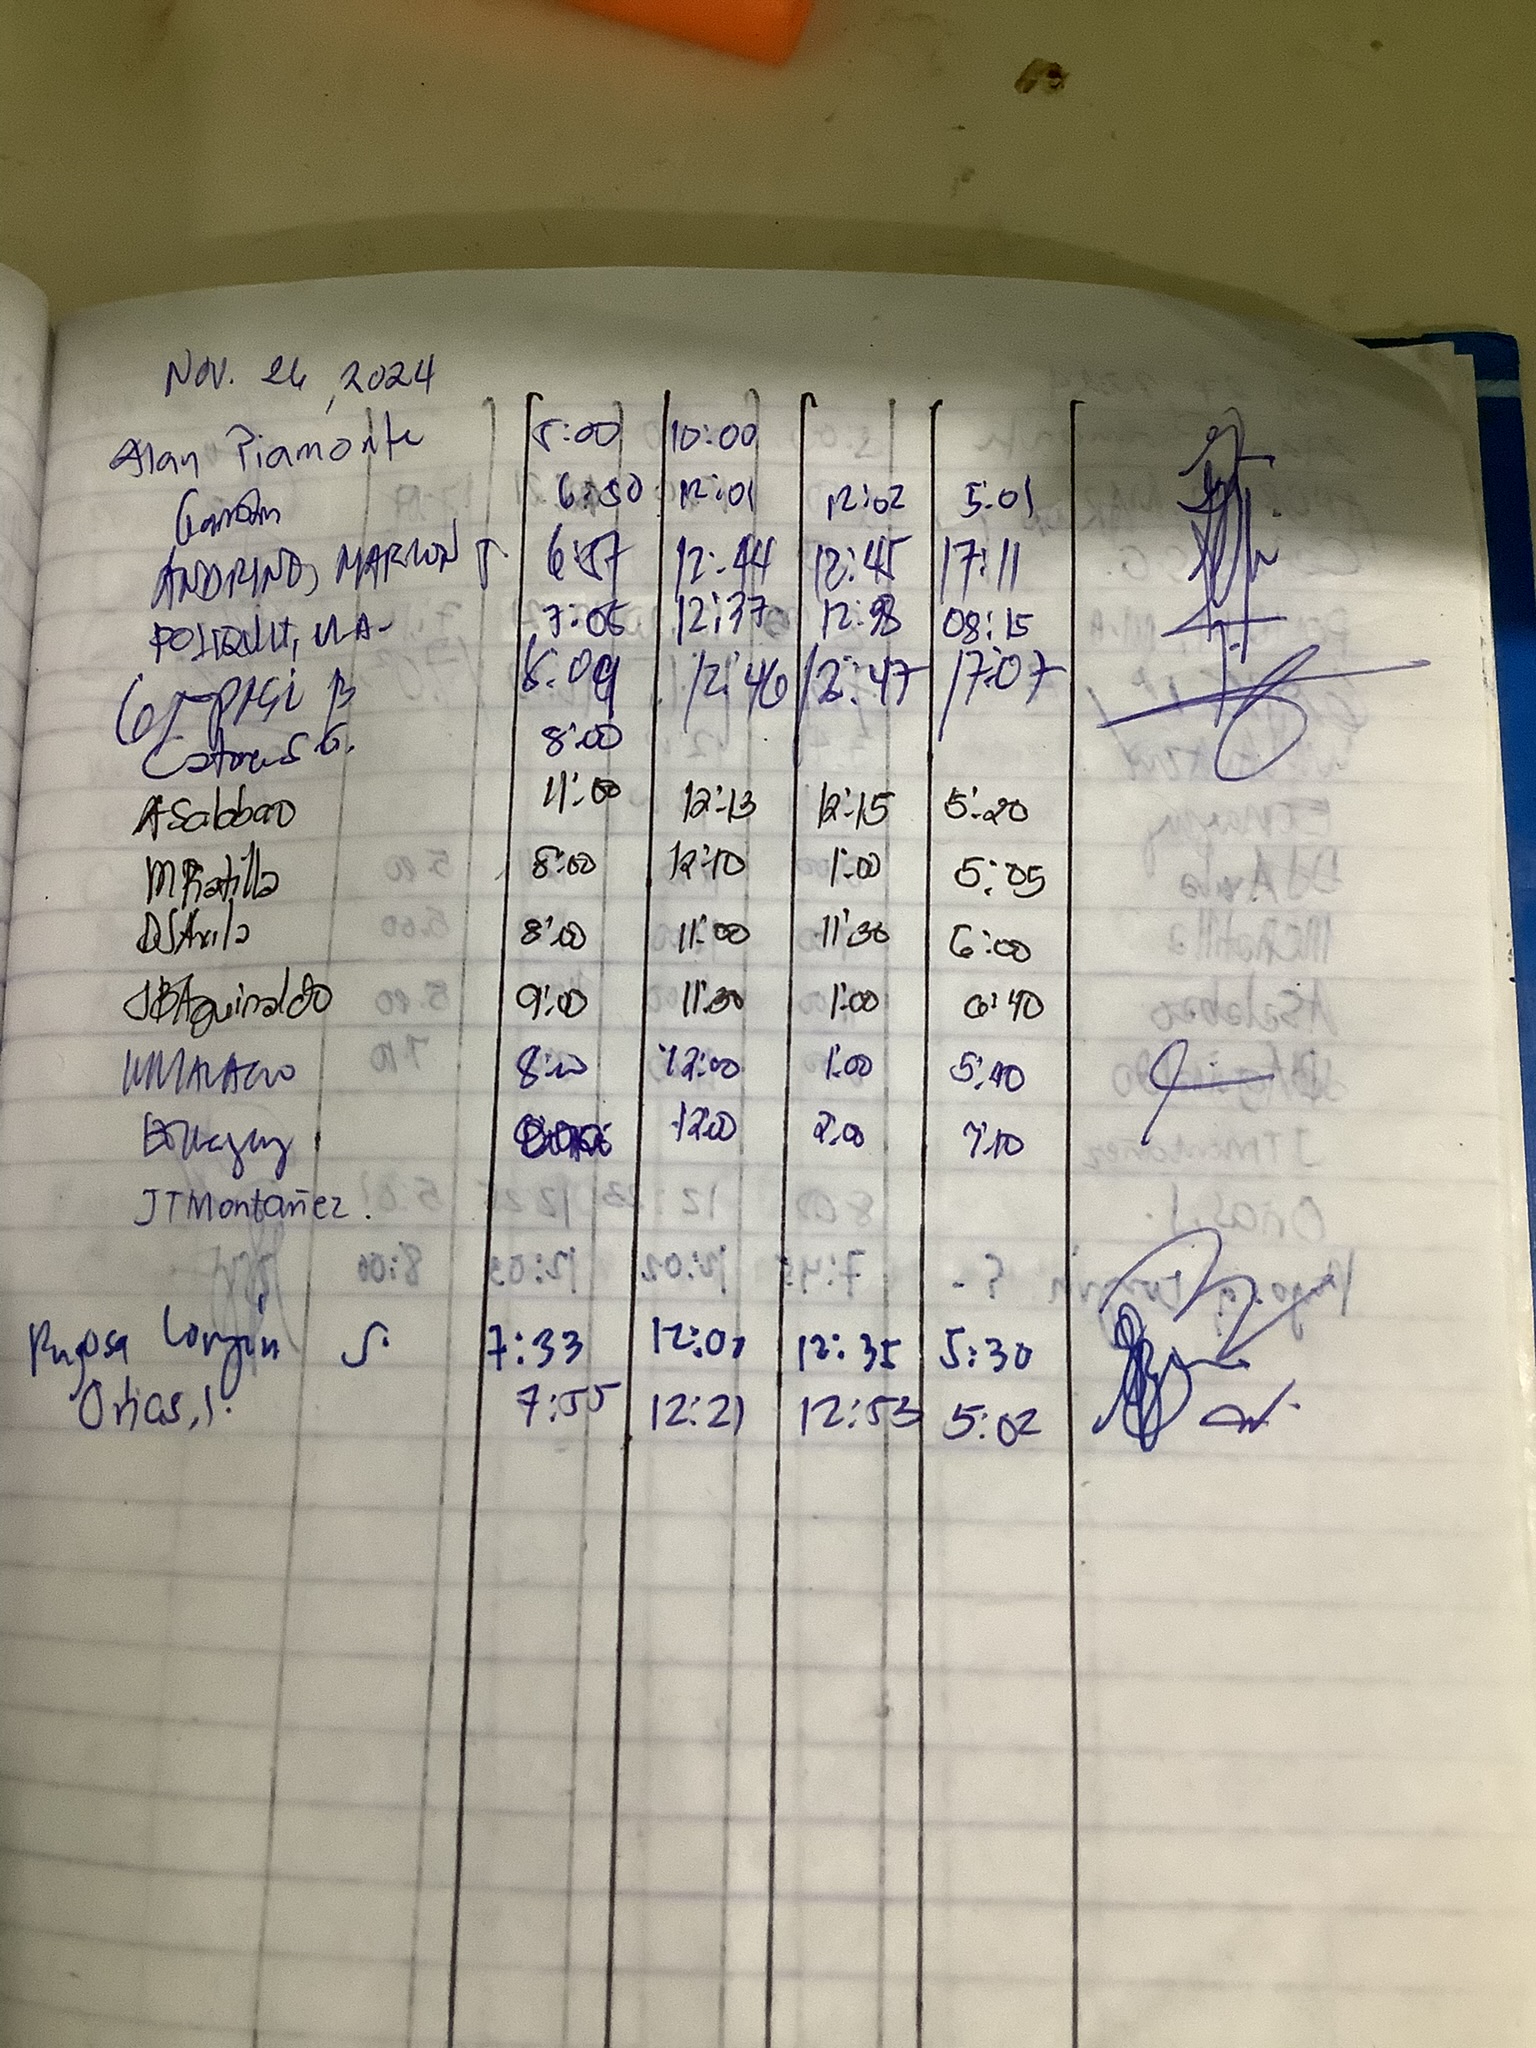 Nov. 26, 2024
Alan Piamonte 8:00 10:00
6:50 12:01 12:02 5:01
ANDRINO, MARLON J 6:57 12:44 12:45 17:11
7:05 12:37 12:38 08:15
8:09 12:46 12:47 17:07
G. 8:00
ASabbao 11:00 12:13 12:15 5:20
MRatilla 8:00 12:10 1:00 5:05
DJAvila 8:00 11:00 11:30 6:00
JBAguinaldo 9:00 11:30 1:00 6:40
8:00 12:00 1:00 5:40
12:00 2:00 7:10
JTMontañez.
Pugosa S. 7:33 12:01 12:35 5:30
Orias, J. 7:55 12:21 12:53 5:02